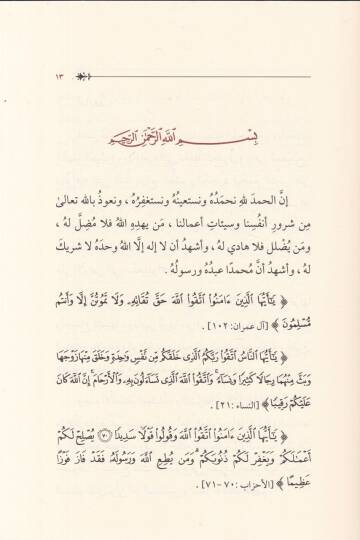 ١٣
بِسْمِ اللَّهِ الرَّحْمَٰنِ الرَّحِيمِ
إنَّ الحمدَ للهِ نحمَدُهُ ونستعينُهُ ونستغفِرُهُ ، ونعوذُ بالله تعالىٰ
مِن شرورِ أنفُسِنا وسيئاتِ أعمالنا ، مَن يهدِهِ اللهُ فلا مُضِلَّ لهُ ،
ومَن يُضْلل فلا هادي لهُ ، وأشهدُ أن لا إله إلَّا اللهُ وحدَهُ لا شريكَ
لهُ ، وأشهدُ أنَّ مُحمدًا عبدُهُ ورسولُهُ .
﴿ يَٰٓأَيُّهَا الَّذِينَ ءَامَنُوا اتَّقُوا اللَّهَ حَقَّ تُقَانِهِۦ وَلَا تَمُوتُنَّ إِلَّا وَأَنتُم
مُّسْلِمُونَ ﴾ [آل عمران: ١٠٢] .
﴿ يَٰٓأَيُّهَا النَّاسُ اتَّقُوا رَبَّكُمُ الَّذِى خَلَقَكُم مِّن نَّفْسٍ وَٰحِدَةٍ وَخَلَقَ مِنْهَا زَوْجَهَا
وَبَثَّ مِنْهُمَا رِجَالًا كَثِيرًا وَنِسَآءً ۚ وَاتَّقُوا اللَّهَ الَّذِى تَسَآءَلُونَ بِهِۦ وَالْأَرْحَامَ ۚ إِنَّ اللَّهَ كَانَ
عَلَيْكُمْ رَقِيبًا ﴾ [النساء :٢١] .
﴿ يَٰٓأَيُّهَا الَّذِينَ ءَامَنُوا اتَّقُوا اللَّهَ وَقُولُوا قَوْلًا سَدِيدًا ۝٧٠ يُصْلِحْ لَكُمْ
أَعْمَٰلَكُمْ وَيَغْفِرْ لَكُمْ ذُنُوبَكُمْ ۗ وَمَن يُطِعِ اللَّهَ وَرَسُولَهُۥ فَقَدْ فَازَ فَوْزًا
عَظِيمًا ﴾ [الأحزاب :٧٠-٧١] .